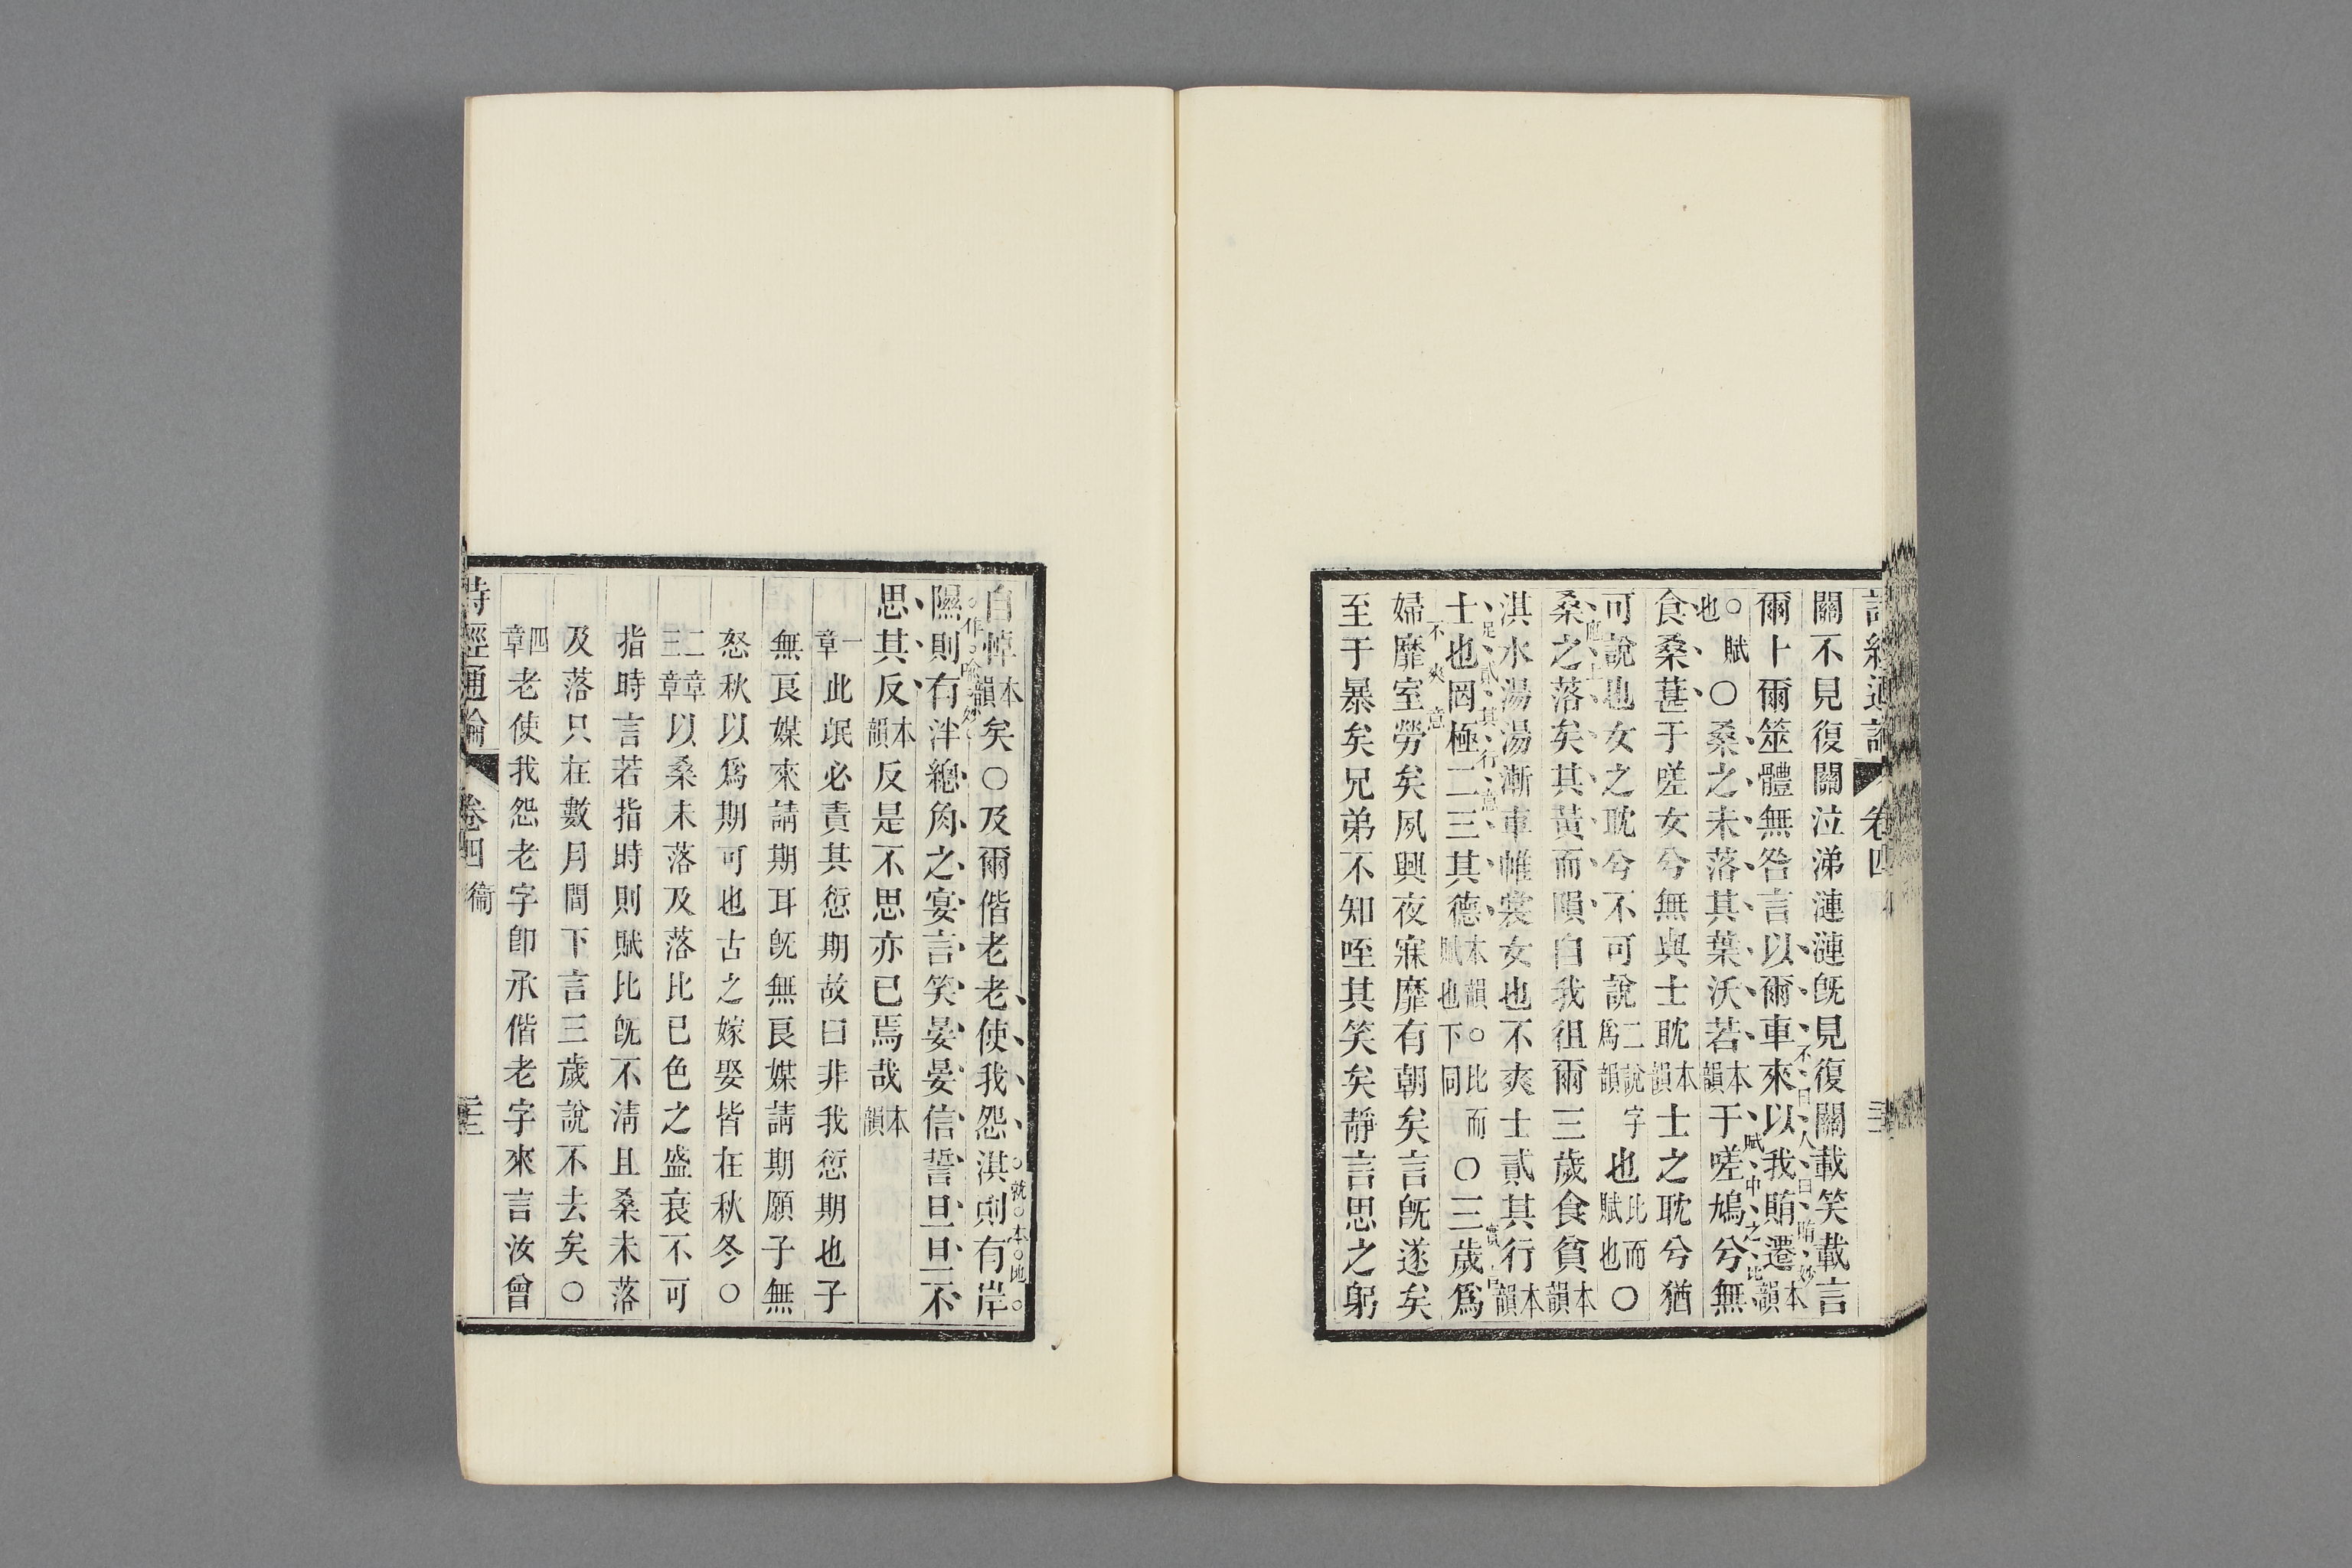 詩經通論 卷四
關不見復關泣涕漣漣旣見復關載笑載言
不曰人曰賄妙
爾卜爾筮體無咎言以爾車來以我賄遷本韻
賦中之比
○賦也○桑之未落其葉沃若本韻于嗟鳩兮無
食桑葚于嗟女兮無與士耽本韻士之耽兮猶
可說也女之耽兮不可說二說字爲韻也比而賦也○
桑之落矣其黃而隕自我徂爾三歲食貧本韻
淇水湯湯漸車帷裳女也不爽士貳其行本韻
足貳其行意
士也罔極二三其德本韻○比而賦也下同○三歲爲
不爽意
婦靡室勞矣夙興夜寐靡有朝矣言旣遂矣
至于暴矣兄弟不知咥其笑矣靜言思之躬
自悼本韻矣○及爾偕老老使我怨淇則有岸
就本地
作喻妙
隰則有泮總角之宴言笑晏晏信誓旦旦不
思其反本韻反是不思亦已焉哉本韻
一章此氓必責其愆期故曰非我愆期也子
無良媒來請期耳旣無良媒請期願子無
怒秋以爲期可也古之嫁娶皆在秋冬○
二章三章以桑未落及落比已色之盛衰不可
指時言若指時則賦比旣不淸且桑未落
及落只在數月間下言三歲說不去矣○
四章老使我怨老字卽承偕老字來言汝曾
詩經通論 卷四 衞